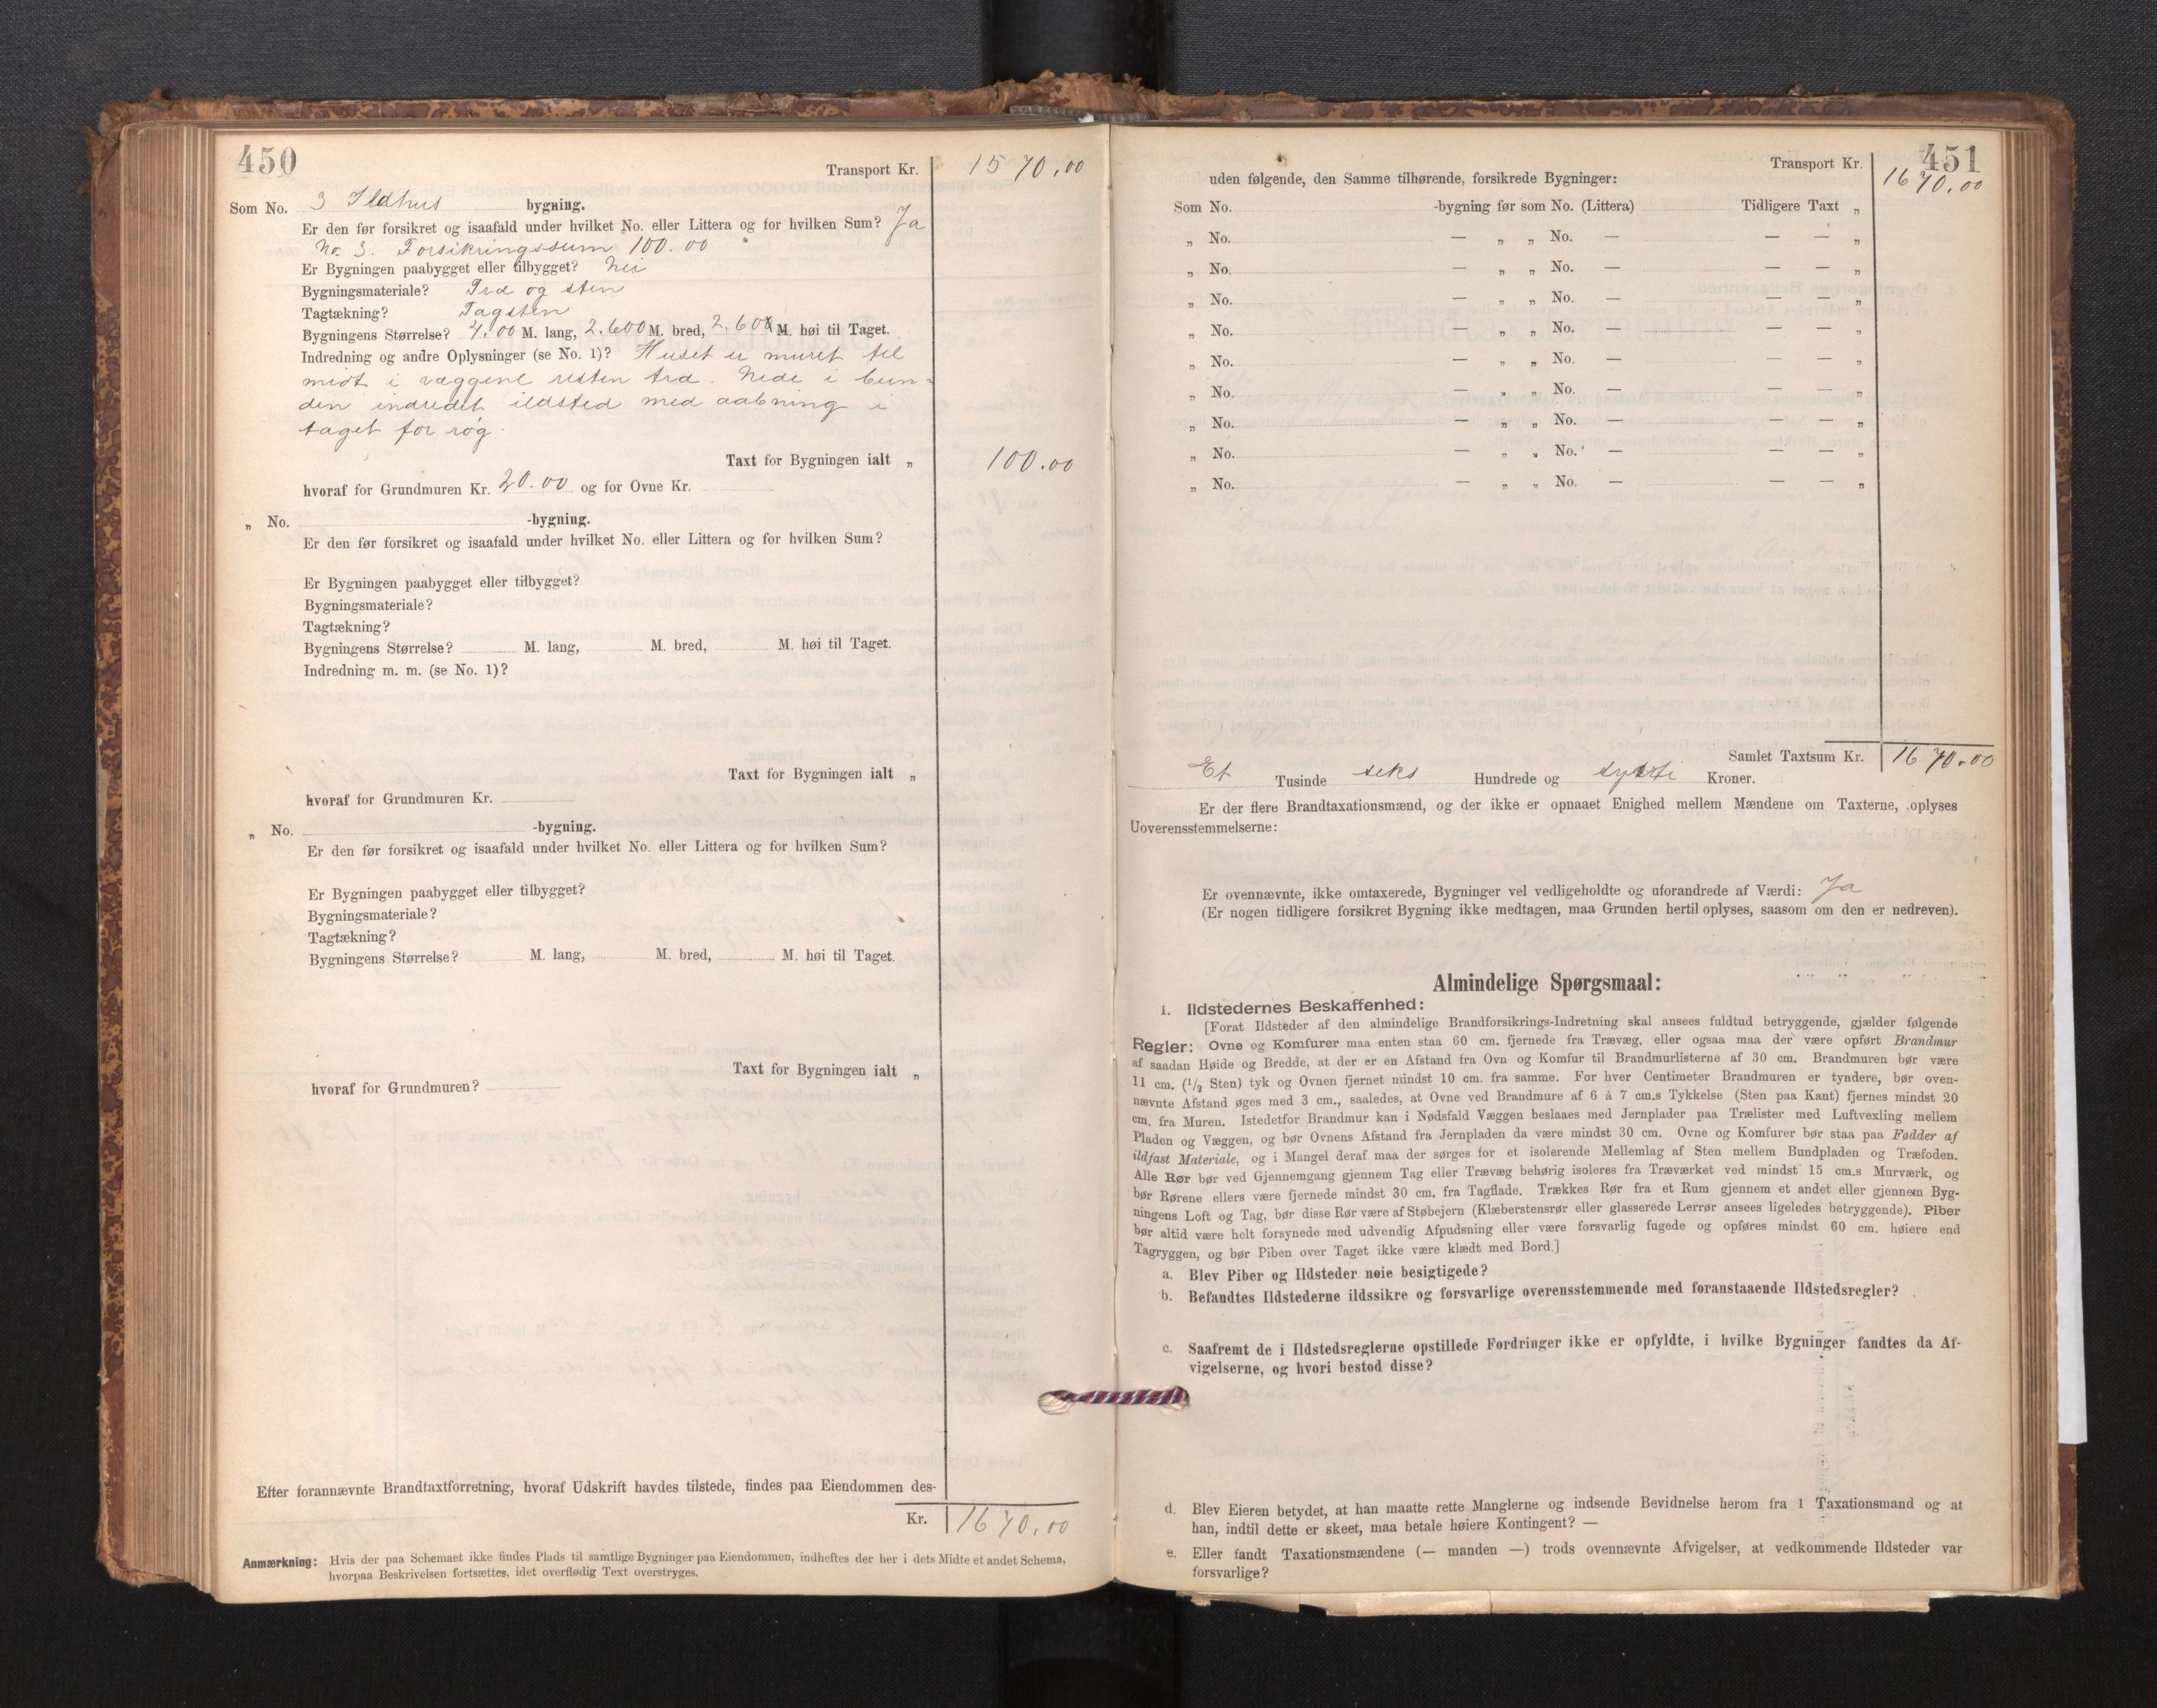 450
Transport Kr. 1570.00
Som No. 3 Ildhus bygning.
Er den før forsikret og isaafald under hvilket No. eller Littera og for hvilken Sum? Ja
No. 3. Forsikringssum 100.00
Er Bygningen paabygget eller tilbygget? Nei
Bygningsmateriale? Træ og sten
Tagtækning? Tagsten
Bygningens Størrelse? 4.00 M. lang, 2.600 M. bred, 2.60 M. høi til Taget.
Indredning og andre Oplysninger (se No. 1)? Huset er muret til
midt i væggene resten træ. Nede i bun-
den indredet ildsted med aabning i
taget for røg.
Taxt for Bygningen ialt „ 100.00
hvoraf for Grundmuren Kr. 20.00 og for Ovne Kr.
„ No. -bygning.
Er den før forsikret og isaafald under hvilket No. eller Littera og for hvilken Sum?
Er Bygningen paabygget eller tilbygget?
Bygningsmateriale?
Tagtækning?
Bygningens Størrelse? M. lang, M. bred, M. høi til Taget.
Indredning m. m. (se No. 1)?
Taxt for Bygningen ialt „
hvoraf for Grundmuren Kr.
„ No. -bygning.
Er den før forsikret og isaafald under hvilket No. eller Littera og for hvilken Sum?
Er Bygningen paabygget eller tilbygget?
Bygningsmateriale?
Tagtækning?
Bygningens Størrelse? M. lang, M. bred, M. høi til Taget.
Taxt for Bygningen ialt „
hvoraf for Grundmuren?
Efter forannævnte Brandtaxtforretning, hvoraf Udskrift havdes tilstede, findes paa Eiendommen des-
Kr. 1670.00
Anmærkning: Hvis der paa Schemaet ikke findes Plads til samtlige Bygninger paa Eiendommen, indheftes der her i dets Midte et andet Schema,
hvorpaa Beskrivelsen fortsættes, idet overflødig Text overstryges.
451
Transport Kr. 1670.00
uden følgende, den Samme tilhørende, forsikrede Bygninger:
Som No. -bygning før som No. (Littera) Tidligere Taxt „
„ No. — „ „ No. — — — „
„ No. — „ „ No. — — — „
„ No. — „ „ No. — — — „
„ No. — „ „ No. — — — „
„ No. — „ „ No. — — — „
„ No. — „ „ No. — — — „
„ No. — „ „ No. — — — „
„ No. — „ „ No. — — — „
„ No. — „ „ No. — — — „
Samlet Taxtsum Kr. 1670.00
Et Tusinde seks Hundrede og sytti Kroner.
Er der flere Brandtaxationsmænd, og der ikke er opnaaet Enighed mellem Mændene om Taxterne, oplyses
Uoverensstemmelserne:
Er ovennævnte, ikke omtaxerede, Bygninger vel vedligeholdte og uforandrede af Værdi: Ja
(Er nogen tidligere forsikret Bygning ikke medtagen, maa Grunden hertil oplyses, saasom om den er nedreven).
Almindelige Spørgsmaal:
1. Ildstedernes Beskaffenhed:
[Forat Ildsteder af den almindelige Brandforsikrings-Indretning skal ansees fuldtud betryggende, gjælder følgende
Regler: Ovne og Komfurer maa enten staa 60 cm. fjernede fra Trævæg, eller ogsaa maa der være opført Brandmur
af saadan Høide og Bredde, at der er en Afstand fra Ovn og Komfur til Brandmurlisterne af 30 cm. Brandmuren bør være
11 cm. (1/2 Sten) tyk og Ovnen fjernet mindst 10 cm. fra samme. For hver Centimeter Brandmuren er tyndere, bør oven-
nævnte Afstand øges med 3 cm., saaledes, at Ovne ved Brandmure af 6 à 7 cm.s Tykkelse (Sten paa Kant) fjernes mindst 20
cm. fra Muren. Istedetfor Brandmur kan i Nødsfald Væggen beslaaes med Jernplader paa Trælister med Luftvexling mellem
Pladen og Væggen, og bør Ovnens Afstand fra Jernpladen da være mindst 30 cm. Ovne og Komfurer bør staa paa Fødder af
ildfast Materiale, og i Mangel deraf maa der sørges for et isolerende Mellemlag af Sten mellem Bundpladen og Træfoden.
Alle Rør bør ved Gjennemgang gjennem Tag eller Trævæg behørig isoleres fra Træværket ved mindst 15 cm.s Murværk, og
bør Rørene ellers være fjernede mindst 30 cm. fra Tagflade. Trækkes Rør fra et Rum gjennem et andet eller gjennem Byg-
ningens Loft og Tag, bør disse Rør være af Støbejern (Klæberstensrør eller glasserede Lerrør ansees ligeledes betryggende). Piber
bør altid være helt forsynede med udvendig Afpudsning eller være forsvarlig fugede og opføres mindst 60 cm. høiere end
Tagryggen, og bør Piben over Taget ikke være klædt med Bord.]
a. Blev Piber og Ildsteder nøie besigtigede?
b. Befandtes Ildstederne ildssikre og forsvarlige overensstemmende med foranstaaende Ildstedsregler?
c. Saafremt de i Ildstedsreglerne opstillede Fordringer ikke er opfyldte, i hvilke Bygninger fandtes da Af-
vigelserne, og hvori bestod disse?
d. Blev Eieren betydet, at han maatte rette Manglerne og indsende Bevidnelse herom fra 1 Taxationsmand og at
han, indtil dette er skeet, maa betale høiere Kontingent? —
e. Eller fandt Taxationsmændene (— manden —) trods ovennævnte Afvigelser, at vedkommende Ildsteder var
forsvarlige?